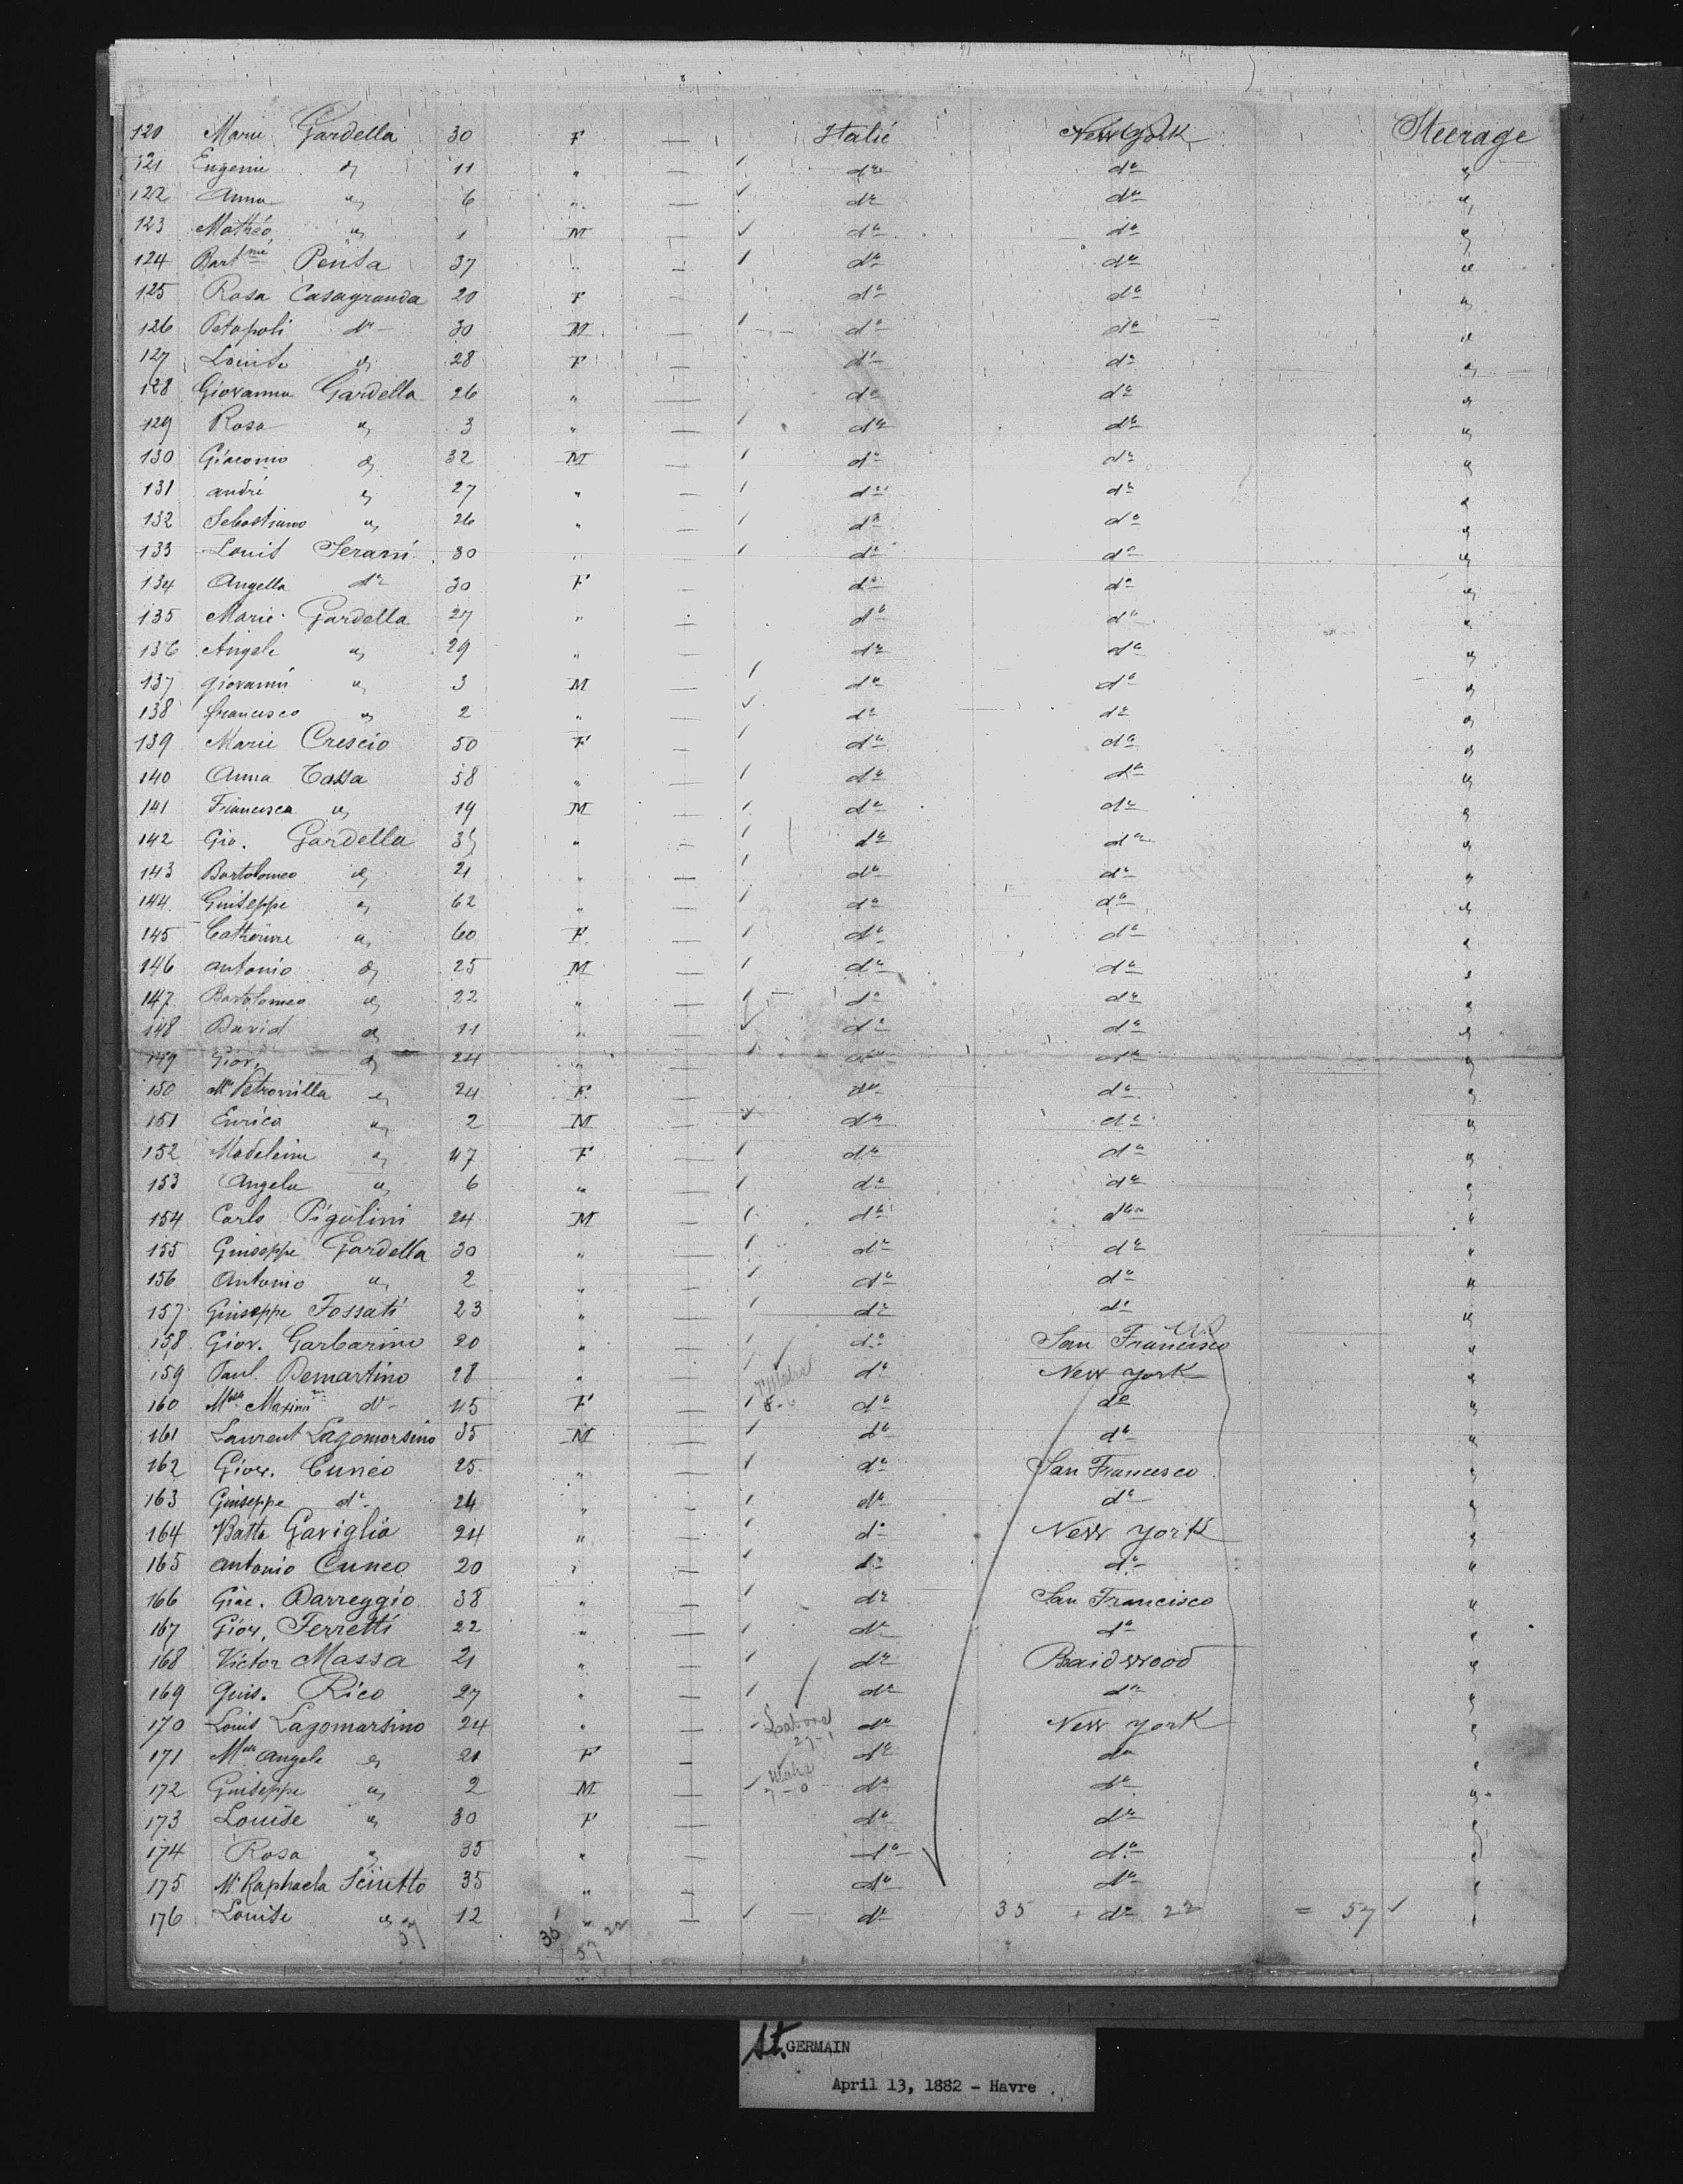 120 Marie Gardella 30 F — Italie New York Steerage
121 Eugenie " 11 " — do do "
122 Anna " 6 " — do do "
123 Mathéo " 1 M — do do "
124 Bartmé Penta 37 " — do do "
125 Rosa Casagranda 20 F do do "
126 do 30 M — do do "
127 " 28 F — do do "
128 Giovanna Gardella 26 " — do do "
129 Rosa " 3 " — do do "
130 Giacomo " 32 M — do do "
131 André " 27 " — do do "
132 Sebastiano " 26 " — do do "
133 Louis 30 " — do do "
134 Angella do 30 F — do do "
135 Marie Gardella 27 " — do do "
136 Angele " 29 " — do do "
137 Giovanni " 3 M — do do "
138 francesco " 2 " — do do "
139 Marie Crescio 50 F — do do "
140 Anna 58 " — do do "
141 Francesca " 19 M — do do "
142 Gio. Gardella 35 " — do do "
143 Bartolomeo " 21 " — do do "
144 Guiseppe " 62 " — do do "
145 Catherine " 60 F — do do "
146 Antonio " 25 M — do do "
147 Bartolomeo " 22 " — do do "
148 David " 11 " — do do "
149 Giov. " 24 " — do do "
150 Ma Petronilla " 24 F — do do "
151 Enrico " 2 M — do do "
152 Madeleine " 47 F — do do "
153 Angela " 6 " — do do "
154 Carlo Pigolini 24 M — do do "
155 Guiseppe Gardella 30 " — do do "
156 Antonio " 2 " — do do "
157 Guiseppe Fossati 23 " — do do "
158 Giov. Garbarino 20 " — do San Francisco "
159 Paul. Demartino 28 " — do New York "
160 do 45 F — do do "
161 Laurent Lagomorsino 35 M — do do "
162 Giov. Cuneo 25 " — do San Francesco "
163 Guiseppe do 24 " — do do "
164 Batta Gaviglio 24 " — do New York "
165 Antonio Cuneo 20 " — do do "
166 Giac. Darreggio 38 " — do San Francisco "
167 Giov. Ferretti 22 " — do do "
168 Victor Massa 21 " — do Braidwood "
169 Guis. Rico 27 " — do do "
170 Louis Lagomarsino 24 " — do New York "
171 Mme Angele " 21 F — do do "
172 Guiseppe " 2 M — do do "
173 Louise " 30 F — do do "
174 Rosa " 35 " — do do "
175 Ma Raphaela Sciutto 35 " — do do "
176 Louise " 12 " — do 35 + do 22 = 57 "
57 35 57 22
St. GERMAIN
April 13, 1882 - Havre